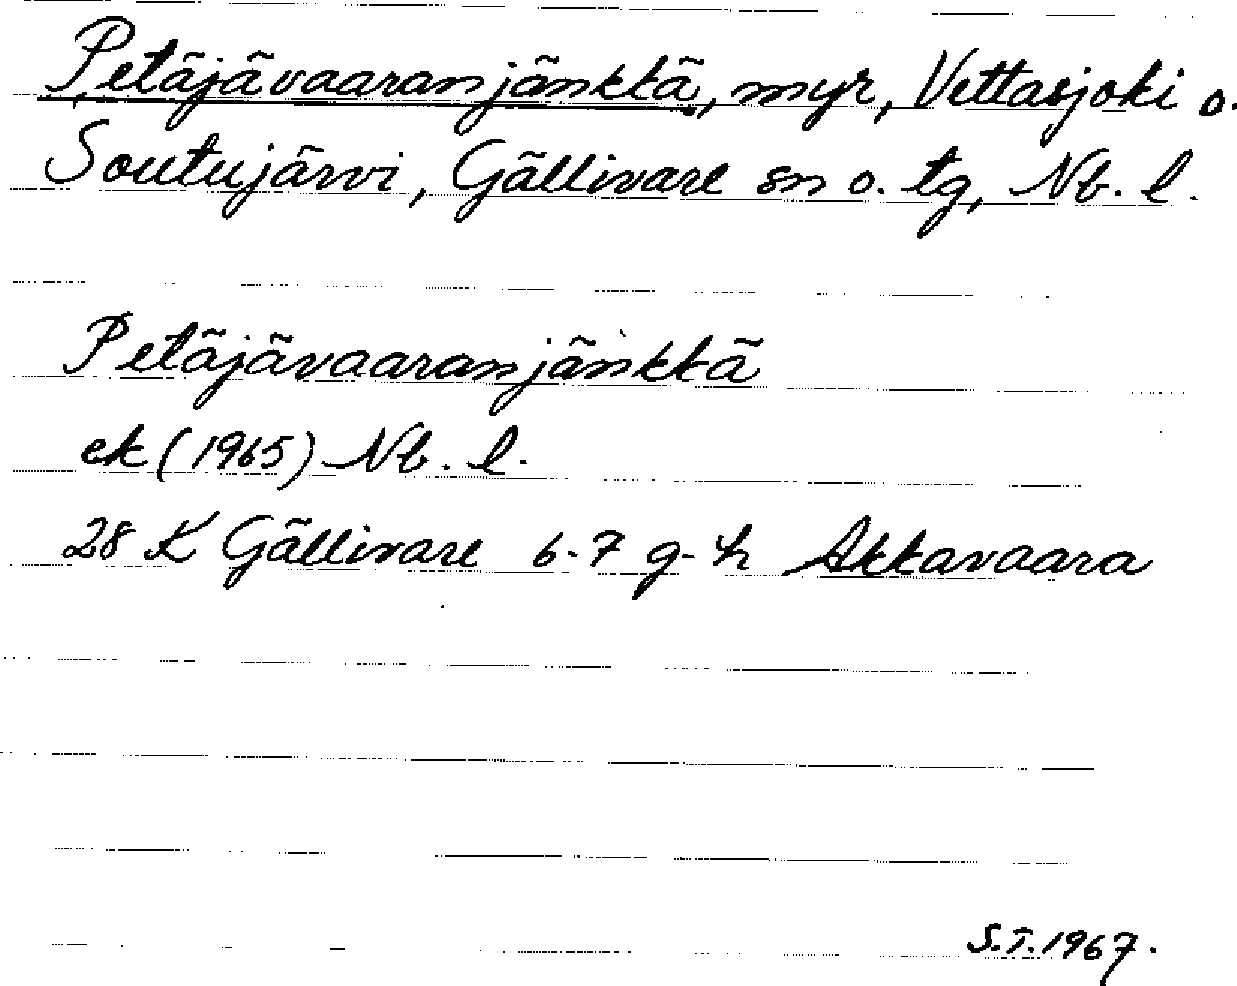 Petäjävaaranjänktä, myr, Vettasjoki o.
Soutujärvi, Gällivare sn o. tg, Nb. l.
Petäjävaaranjänktä
ek (1965) Nb. l.
28 K Gällivare 6-7 g-h Akkavaara
S.T. 1967.